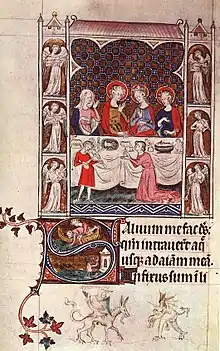 Saluum me fac deus
qm intrauerunt aq
usq; ad animam meā.
Infixus sum i li